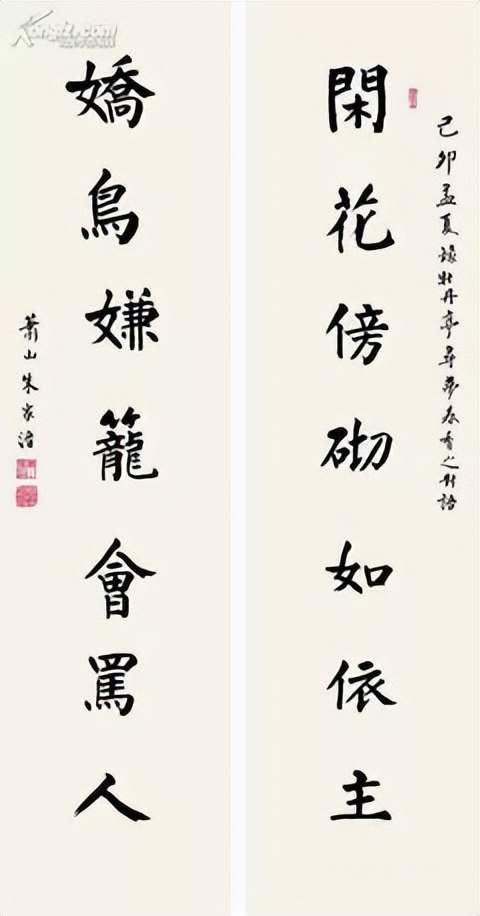 己卯孟夏錄牡丹亭尋夢春香之對語
閑花傍砌如依主
嬌鳥嫌籠會罵人
蕭山朱家溍